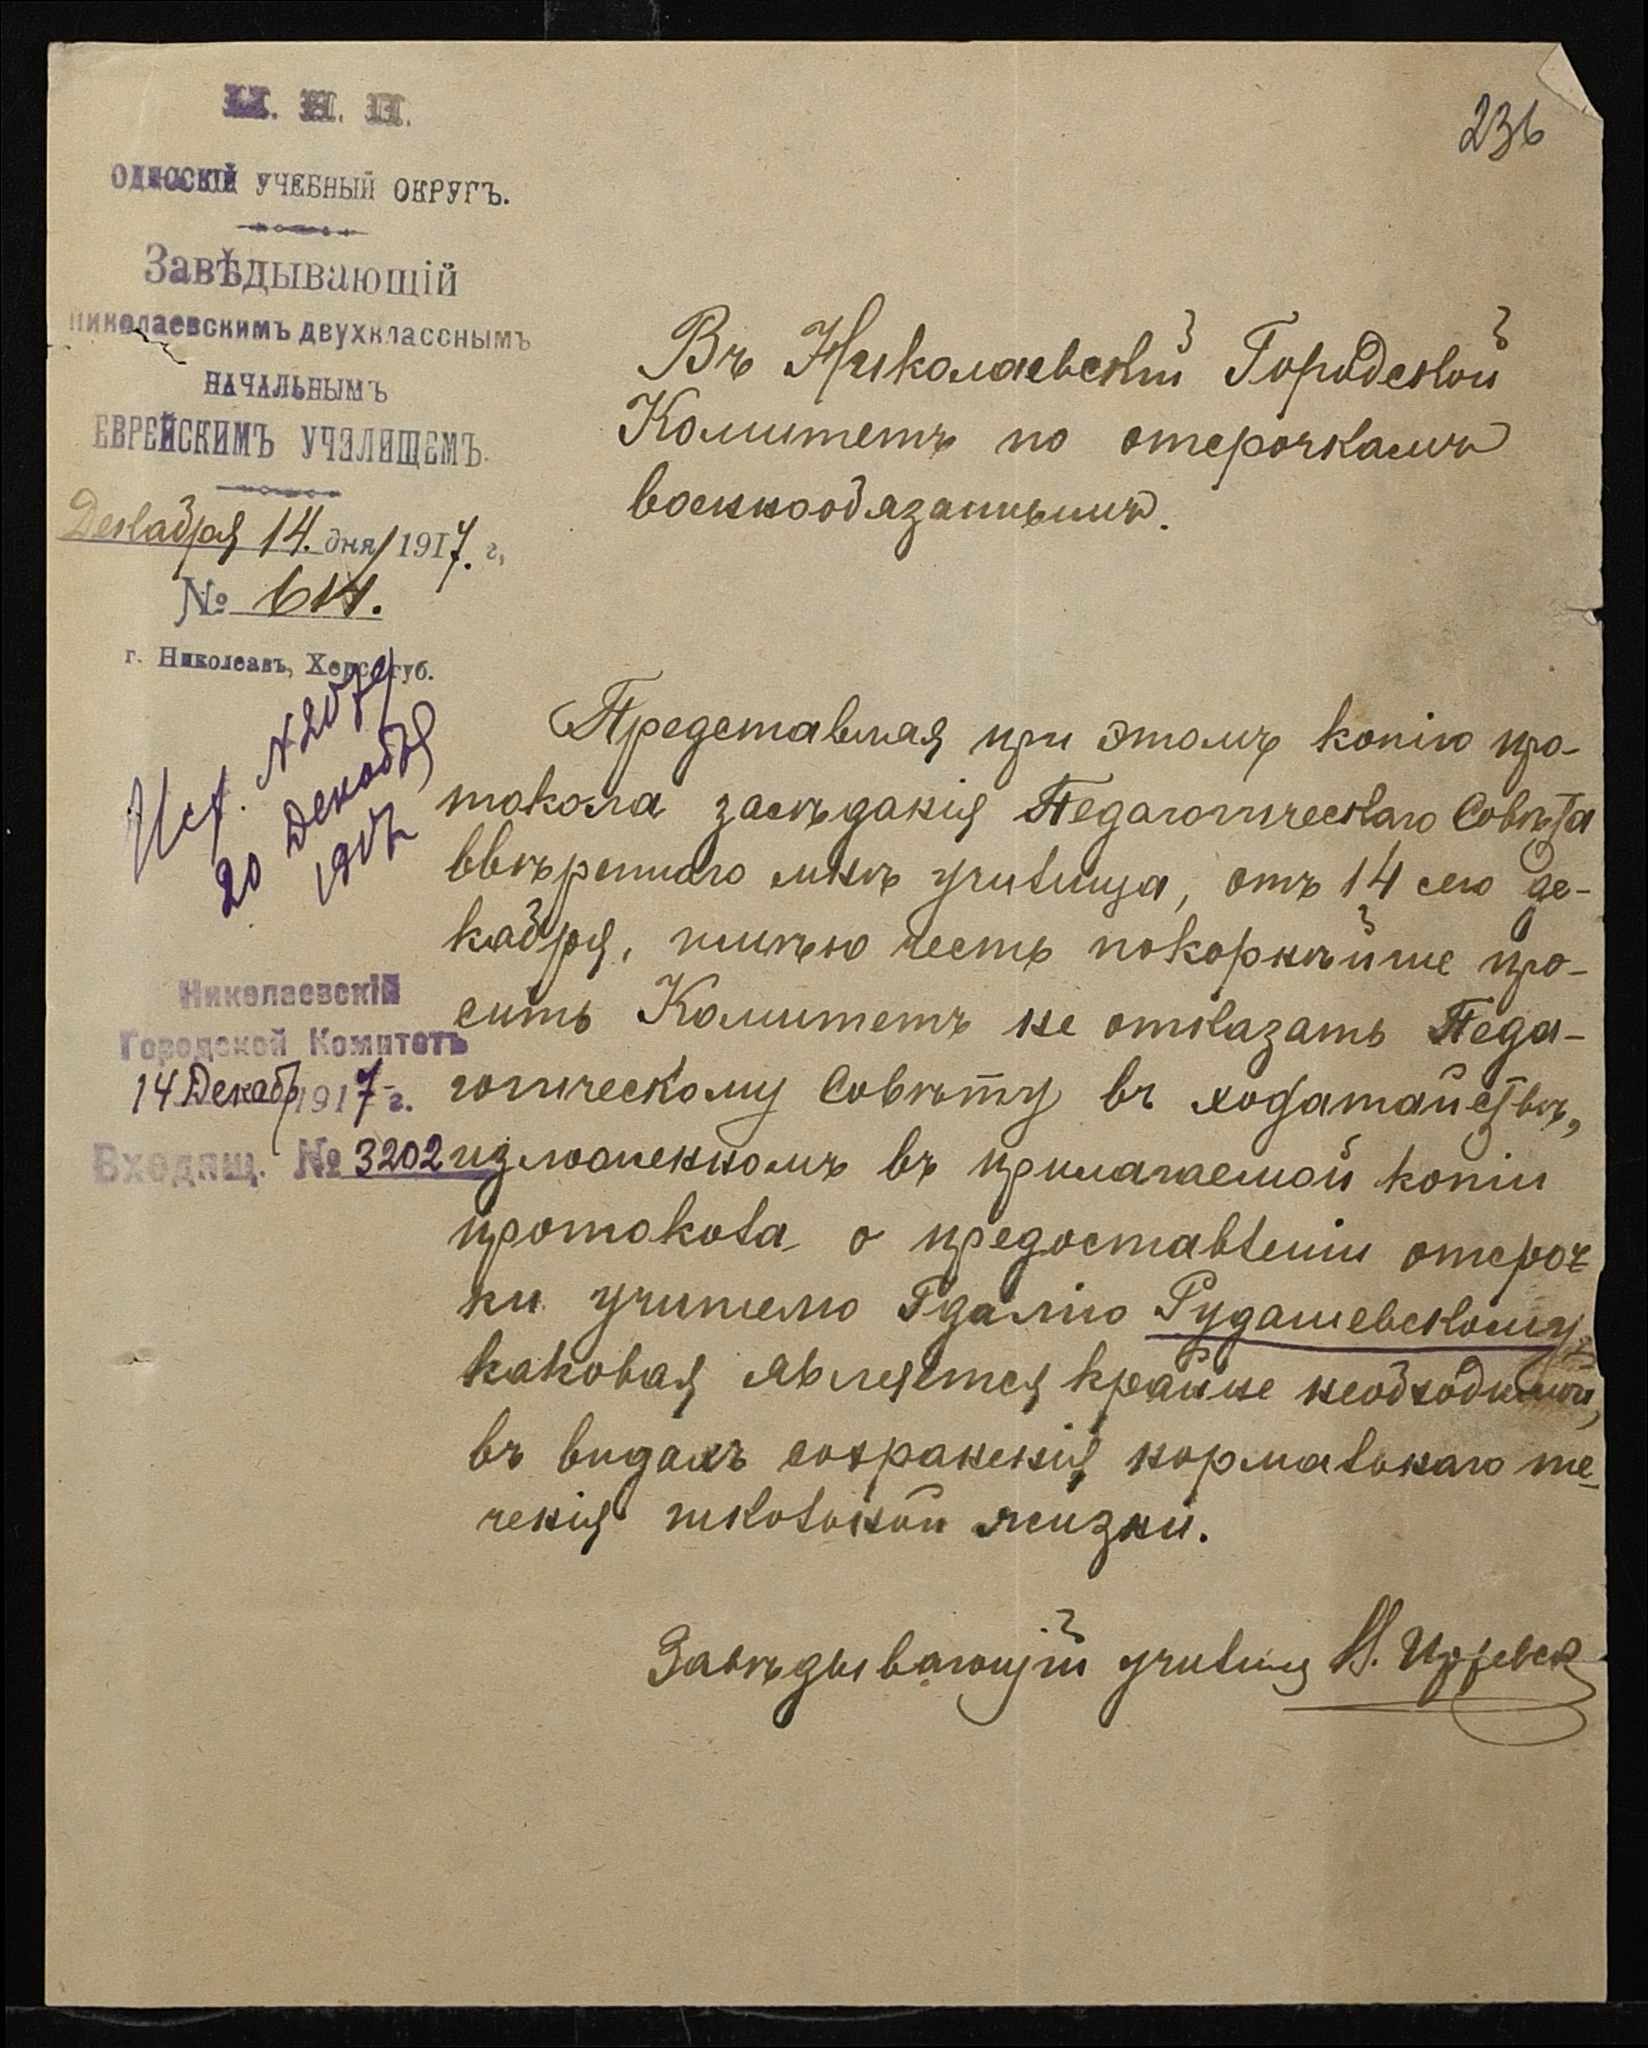 М. Н. П.
ОДЕССКІЙ УЧЕБНЫЙ ОКРУГЪ.
Завѣдывающій
николаевскимъ двухкласснымъ
НАЧАЛЬНЫМЪ
ЕВРЕЙСКИМЪ УЧИЛИЩЕМЪ.
Декабря 14. дня 1917. г,
№ 614.
г. Николаевъ, Херс. губ.
20 Декабря
Николаевскій
Городской Комитетъ
14 Декабр 1917 г.
Входящ. № 3202
236
Въ Николаевскій Городской
Комитетъ по отсрочкамъ
военнообязаннымъ.
Представляя при этомъ копію про-
токола засѣданія Педагогическаго Совѣта
ввѣреннаго мнѣ училища, отъ 14 сего де-
кабря, имѣю честь покорнѣйше про-
сить Комитетъ не отказать Педа-
гогическому Совѣту въ ходатайствѣ,
изложенномъ въ прилагаемой копіи
протокола о предоставленіи отсроч-
ки учителю Гдалію Рудашевскому,
каковая является крайне необходимой,
въ видахъ сохраненія нормальнаго те-
ченія школьной жизни.
Завѣдывающій училищ